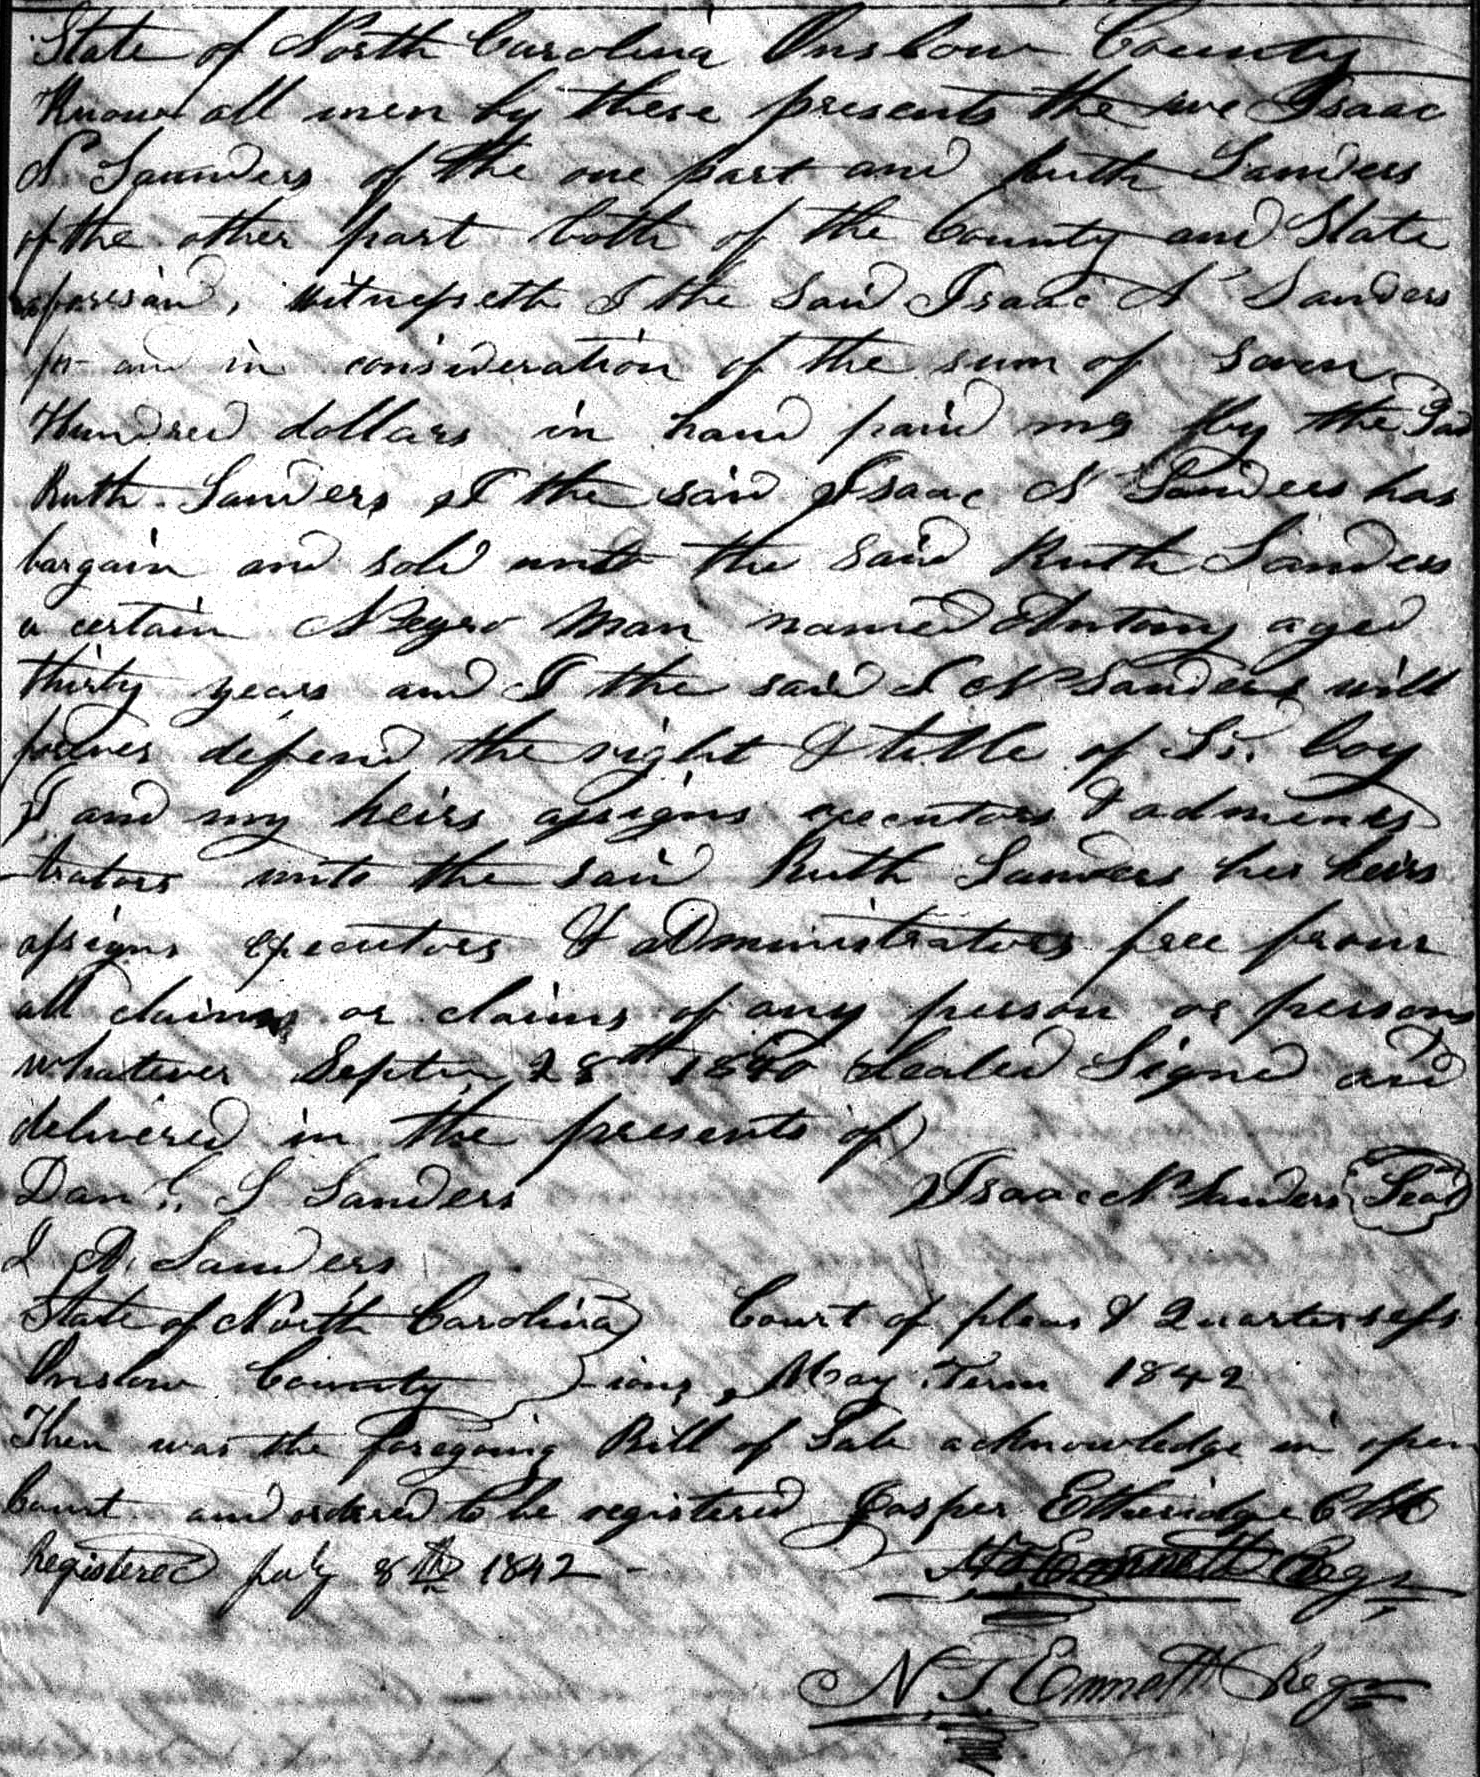 State of North Carolina Onslow County
Know all men by these presents the we Isaac
N Sanders of the one part and Ruth Sanders
of the other part both of the County and State
aforesaid, witnesseth I the said Isaac N Sanders
for and in consideration of the sum of Seven
Hundred dollars in hand paid me by the Said
Ruth Sanders I the said Isaac N Sanders has
bargain and sold unto the said Ruth Sanders
a certain Negro Man named Antony aged
thirty years and I the said I N Sanders will
forever defend the right & title of Sd. boy
I and my heirs assigns executors & adminis
trators unto the said Ruth Sanders her heirs
assigns executors & administrators free from
all claims or claims of any person or persons
whatever Septem 28th 1840 Sealed Signed and
delivered in the presents of
Danl. S Sanders Isaac N Sanders Seal
I A. Sanders
State of North Carolina Court of pleas & Quarter sess
Onslow County ions, May Term 1842
Then was the foregoing Bill of Sale acknowledge in open
Court and ordered to be registered Jasper Etheridge Clk
Registered July 8th 1842 - N.T. Ennett Regr
N. T. Ennett Regr